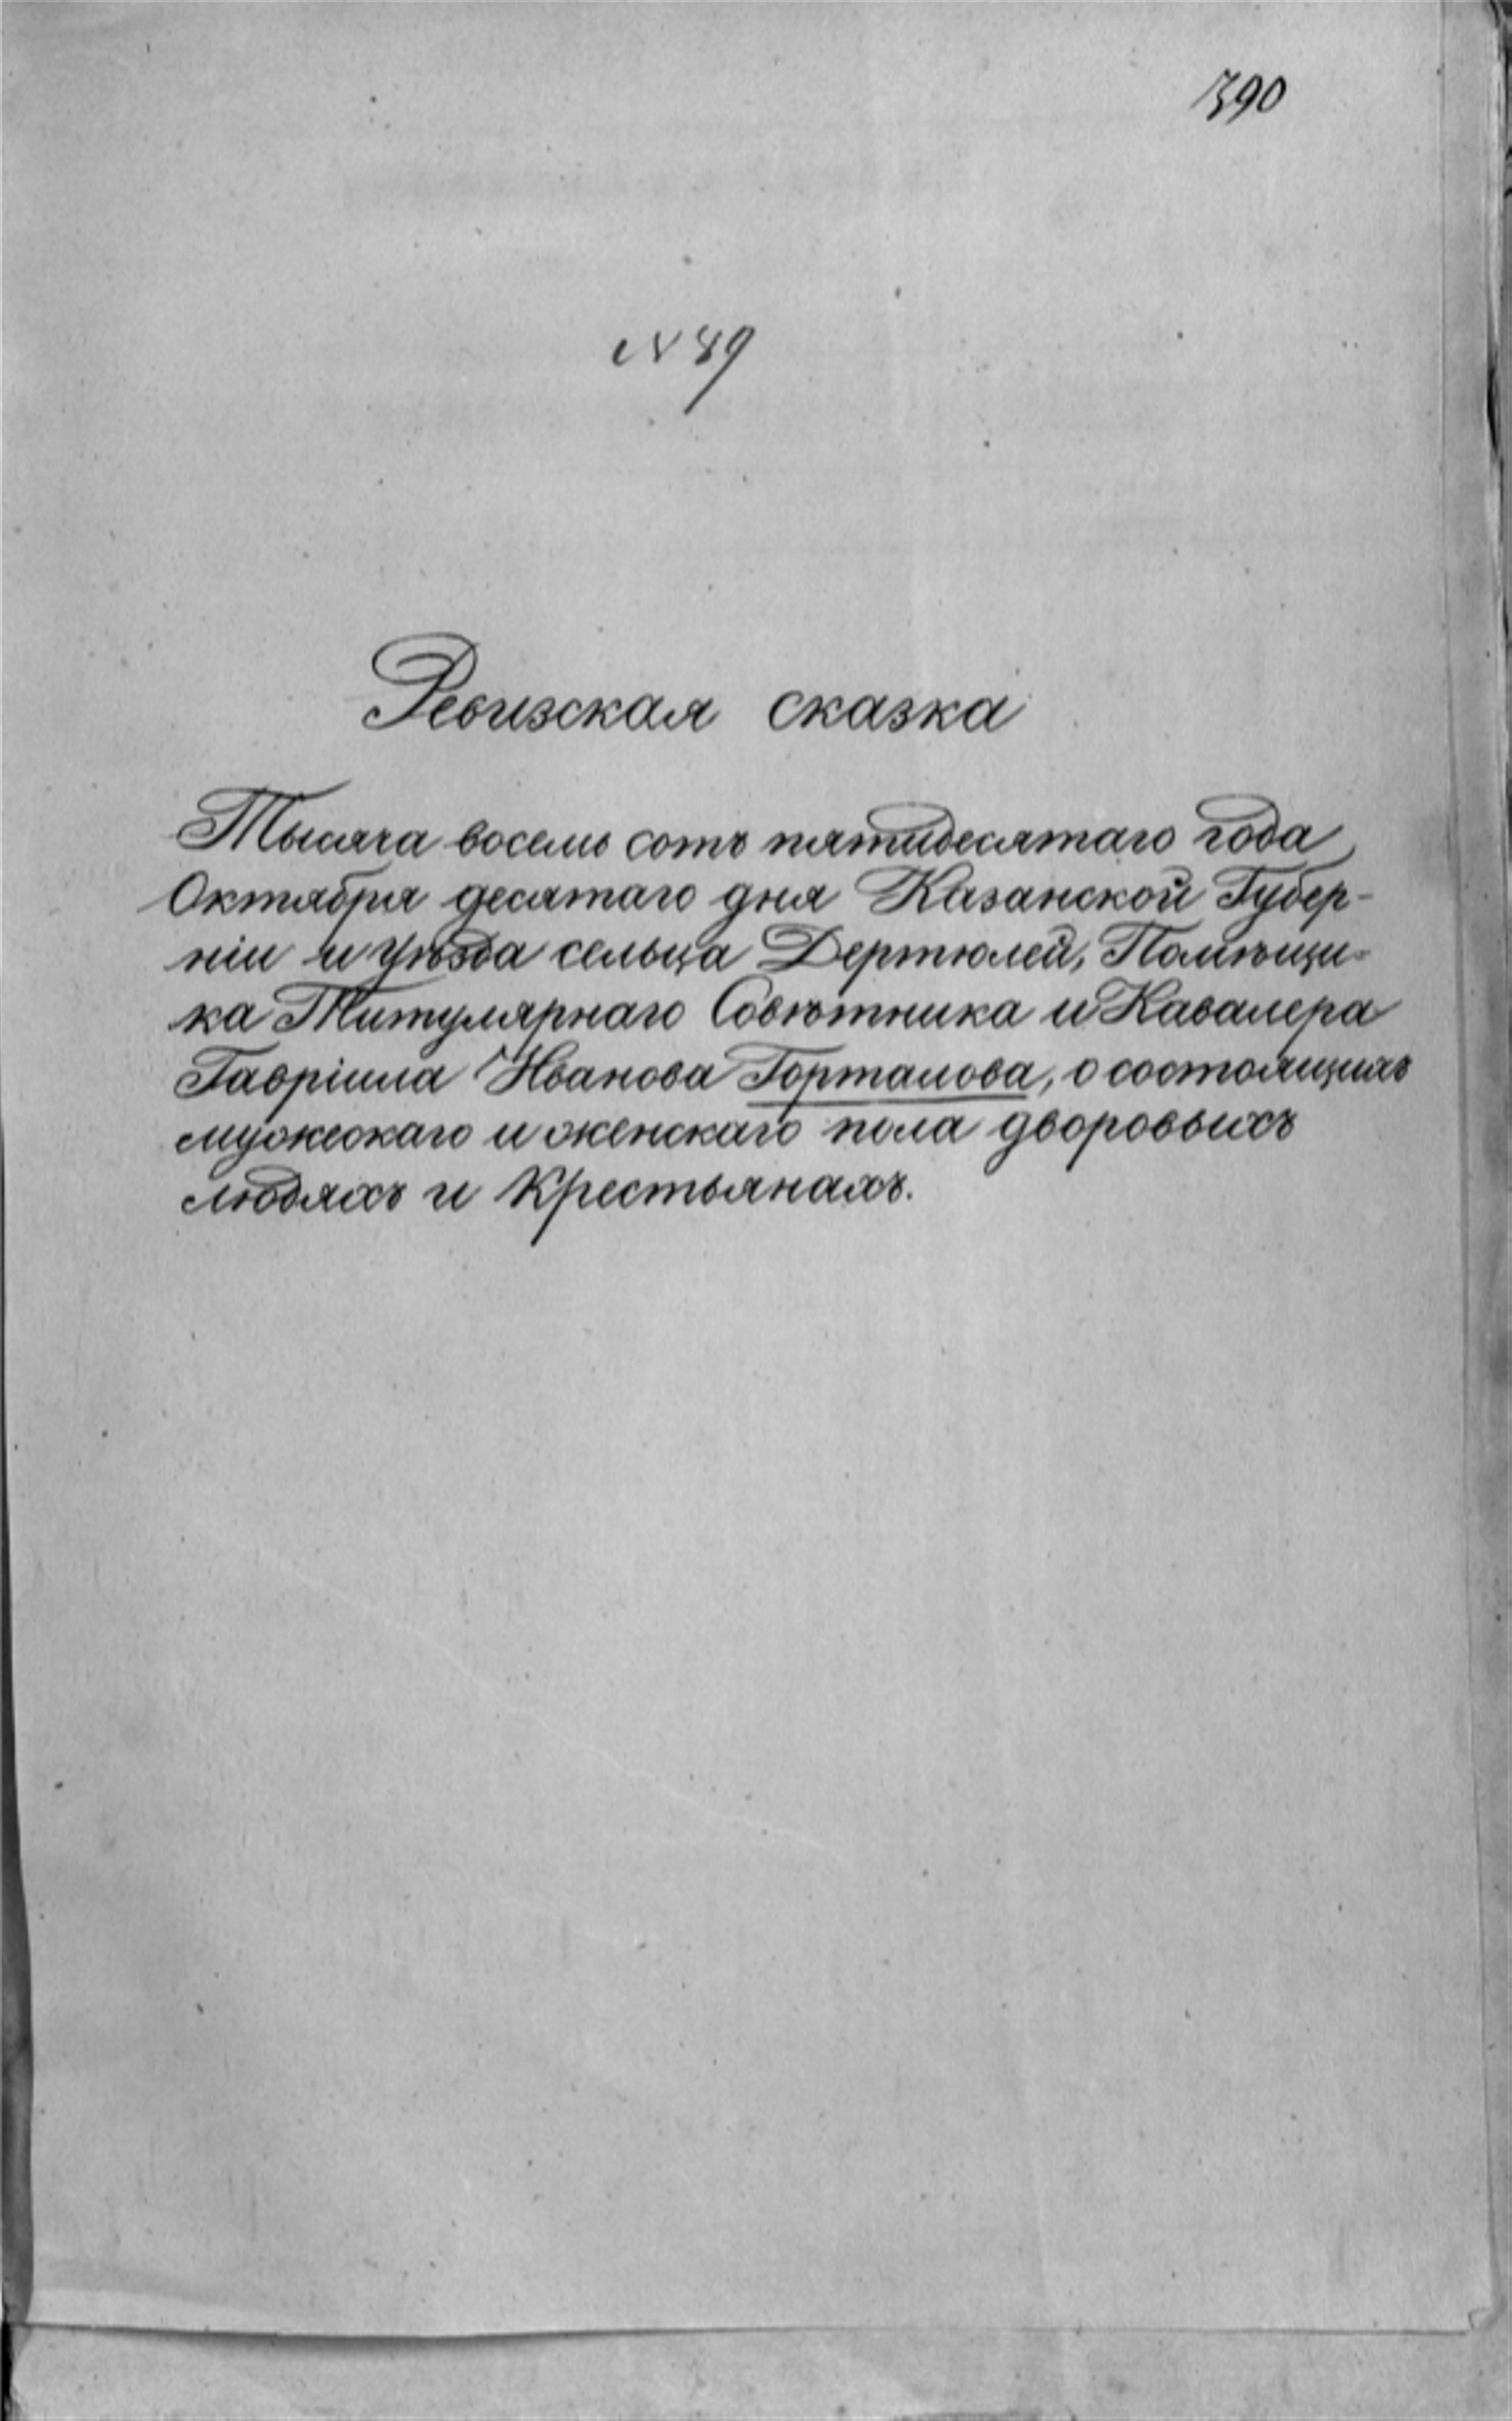 390
№ 89
Ревизская сказка
Тысяча восемь сотъ пятидесятаго года
Октября десятаго дня Казанской Губер-
ніи и уѣзда сельца Дертюлей, Помѣщи-
ка Титулярнаго Совѣтника и Кавалера
Гавріила Иванова Горталова, о состоящихъ
мужескаго и женскаго пола дворовыхъ
людяхъ и крестьянахъ.